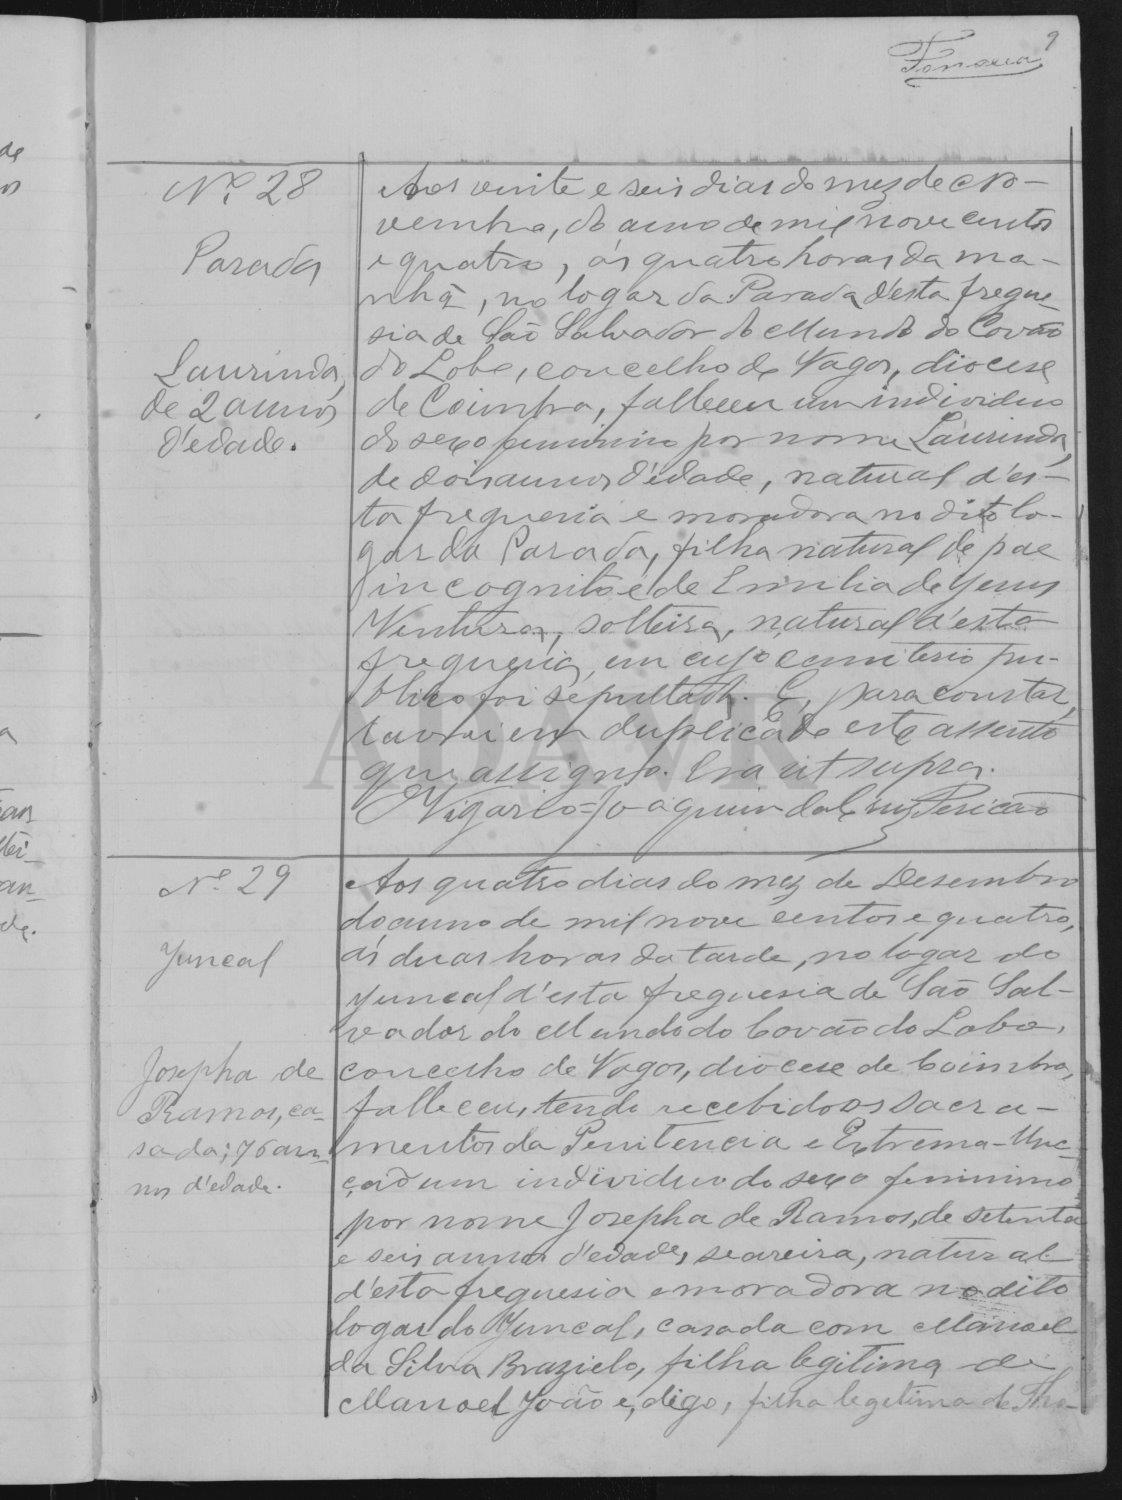 9
Fonseca
Nº 28
Parada
Laurinda,
de 2 annos
d'edade.
Aos vinte e seis dias do mez de No-
vembro, do anno de mil nove centos
e quatro, ás quatro horas da ma-
nhã, no logar da Parada d'esta fregue-
sia de São Salvador do Mundo do Covão
do Lobo, concelho de Vagos, diocese
de Coimbra, falleceu um individuo
do sexo feminino por nome Laurinda,
de dois annos d'edade, natural d'es-
ta freguesia e moradora no dito lo-
gar da Parada, filha natural de pae
incognito e de Emilia de Jesus
Ventura, solteira, natural d'esta
freguesia, em cujo cemiterio pu-
blico foi sepultada. E, para constar,
lavrei em duplicado este assento
que assigno. Era ut supra.
O Vigario = Joaquim da Cruz Pericão
Nº 29
Juncal
Josepha de
Ramos, ca-
sada; 76 an-
nos d'edade.
Aos quatro dias do mez de Desembro
do anno de mil nove centos e quatro,
ás duas horas da tarde, no logar do
Juncal d'esta freguesia de São Sal-
vador do Mundo do Covão do Lobo,
concelho de Vagos, diocese de Coimbra,
falleceu, tendo recebido os sacra-
mentos da Penitencia e Extrema-Unc-
ção um individuo do sexo feminino
por nome Josepha de Ramos, de setenta
e seis annos d'edade, seareira, natural
d'esta freguesia e moradora no dito
logar do Juncal, casada com Manoel
da Silva Brazielo, filha legitima de
Manoel João e, digo, filha legitima de Tho-
ADAVR